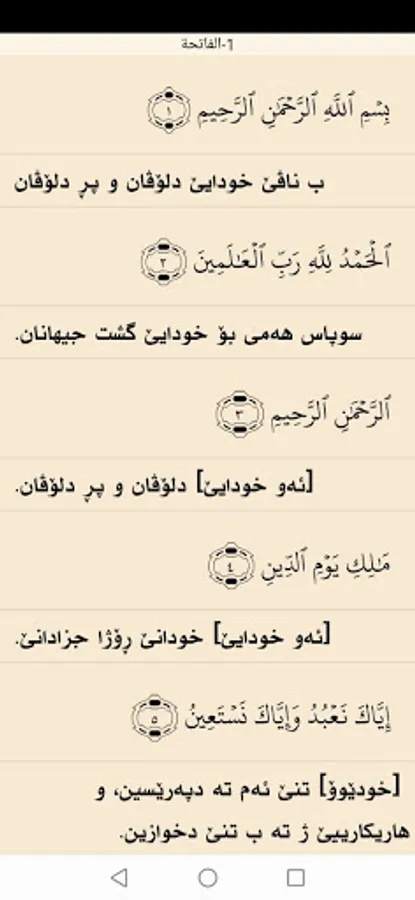 1-الفاتحة
بِسْمِ ٱللَّهِ ٱلرَّحْمَٰنِ ٱلرَّحِيمِ ١
ب ناڤێ خودایێ دلۆڤان و پڕ دلۆڤان
ٱلْحَمْدُ لِلَّهِ رَبِّ ٱلْعَٰلَمِينَ ٢
سوپاس هەمی بۆ خودایێ گشت جیهانان.
ٱلرَّحْمَٰنِ ٱلرَّحِيمِ ٣
[ئەو خودایێ] دلۆڤان و پڕ دلۆڤان.
مَٰلِكِ يَوْمِ ٱلدِّينِ ٤
[ئەو خودایێ] خودانێ ڕۆژا جزادانێ.
إِيَّاكَ نَعْبُدُ وَإِيَّاكَ نَسْتَعِينُ ٥
[خودێوۆ] تنێ ئەم تە دپەرێسین، و
هاریکارییێ ژ تە ب تنێ دخوازین.